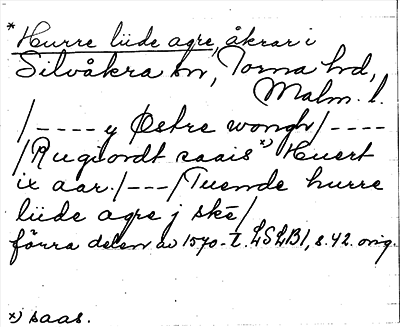 * Hurre lüde agre, åkrar i
Silvåkra sn, Torna hd,
Malm. l.
/---- y Østre wongh/----
/Rugiordt saais*) Huert
ix aar./---/Tuende hurre
lüde agre j ské/
förra delen av 1570-t. LSLB1, s. 42. orig.
*) saas.